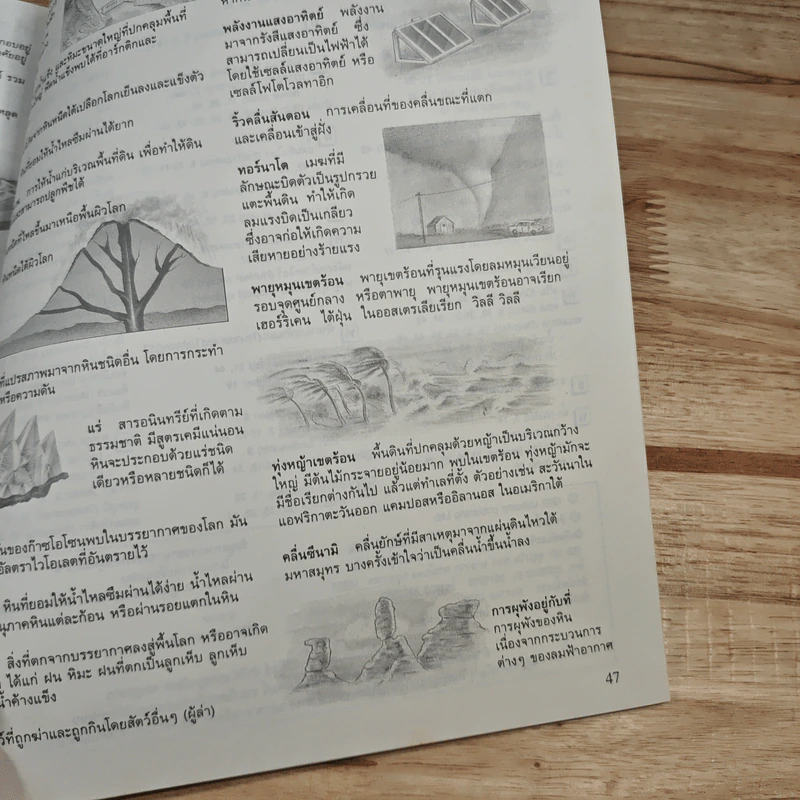 กอบอยู่
คัยอยู่
รวม
หลุด
และหิมะขนาดใหญ่ที่ปกคลุมพื้นที่
น้ำแข็งพบได้ที่อาร์กติกและ
จากหินหนืดใต้เปลือกโลกเย็นลงและแข็งตัว
ยอมให้น้ำไหลซึมผ่านได้ยาก
การให้น้ำแก่บริเวณพื้นที่ดิน เพื่อทำให้ดิน
สามารถปลูกพืชได้
ที่ไหลขึ้นมาเหนือพื้นผิวโลก
หนืดใต้ผิวโลก
ที่แปรสภาพมาจากหินชนิดอื่น โดยการกระทำ
หรือความดัน
แร่ สารอนินทรีย์ที่เกิดตาม
ธรรมชาติ มีสูตรเคมีแน่นอน
หินจะประกอบด้วยแร่ชนิด
เดียวหรือหลายชนิดก็ได้
ของก๊าซโอโซนพบในบรรยากาศของโลก มัน
อัลตราไวโอเลตที่อันตรายไว้
หินที่ยอมให้น้ำไหลซึมผ่านได้ง่าย น้ำไหลผ่าน
นุภาคหินแต่ละก้อน หรือผ่านรอยแตกในหิน
สิ่งที่ตกจากบรรยากาศลงสู่พื้นโลก หรืออาจเกิด
ได้แก่ ฝน หิมะ ฝนที่ตกเป็นลูกเห็บ ลูกเห็บ
น้ำค้างแข็ง
ที่ถูกฆ่าและถูกกินโดยสัตว์อื่นๆ (ผู้ล่า)
พลังงานแสงอาทิตย์ พลังงาน
มาจากรังสีแสงอาทิตย์ ซึ่ง
สามารถเปลี่ยนเป็นไฟฟ้าได้
โดยใช้เซลล์แสงอาทิตย์ หรือ
เซลล์โฟโตโวลทาอิก
ริ้วคลื่นสันดอน การเคลื่อนที่ของคลื่นขณะที่แตก
และเคลื่อนเข้าสู่ฝั่ง
ทอร์นาโด เมฆที่มี
ลักษณะบิดตัวเป็นรูปกรวย
แตะพื้นดิน ทำให้เกิด
ลมแรงบิดเป็นเกลียว
ซึ่งอาจก่อให้เกิดความ
เสียหายอย่างร้ายแรง
พายุหมุนเขตร้อน พายุเขตร้อนที่รุนแรงโดยลมหมุนเวียนอยู่
รอบจุดศูนย์กลาง หรือตาพายุ พายุหมุนเขตร้อนอาจเรียก
เฮอร์ริเคน ไต้ฝุ่น ในออสเตรเลียเรียก วิลลี วิลลี
ทุ่งหญ้าเขตร้อน พื้นดินที่ปกคลุมด้วยหญ้าเป็นบริเวณกว้าง
ใหญ่ มีต้นไม้กระจายอยู่น้อยมาก พบในเขตร้อน ทุ่งหญ้ามักจะ
มีชื่อเรียกต่างกันไป แล้วแต่ทำเลที่ตั้ง ตัวอย่างเช่น สะวันนาใน
แอฟริกาตะวันออก แคมปอสหรืออิลานอส ในอเมริกาใต้
คลื่นซีนามิ คลื่นยักษ์ที่มีสาเหตุมาจากแผ่นดินไหวใต้
มหาสมุทร บางครั้งเข้าใจว่าเป็นคลื่นน้ำขึ้นน้ำลง
การผุพังอยู่กับที่
การผุพังของหิน
เนื่องจากกระบวนการ
ต่างๆ ของลมฟ้าอากาศ
47